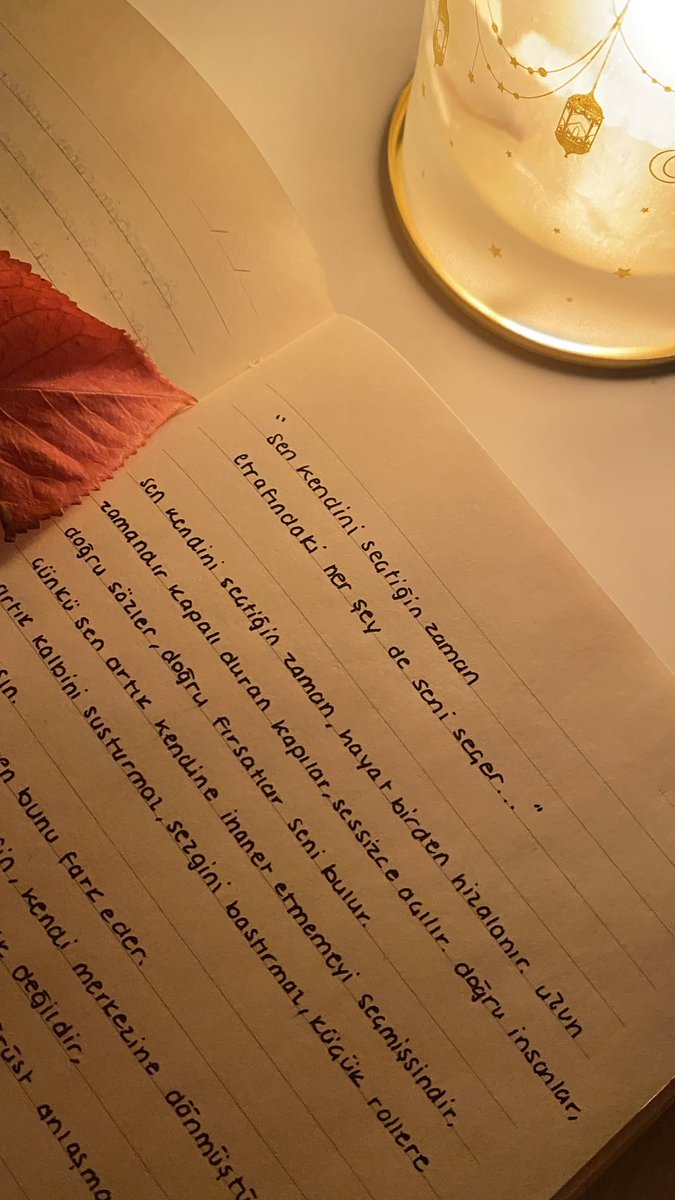 "sen kendini seçtiğin zaman
etrafındaki her şey de seni seçer..."
sen kendini seçtiğin zaman, hayat birden hizalanır. uzun
zamandır kapalı duran kapılar, sessizce açılır. doğru insanlar,
doğru sözler, doğru fırsatlar seni bulur.
çünkü sen artık kendine ihanet etmemeyi seçmişsindir.
artık kalbini susturmaz, sezgini bastırmaz, küçük rollere
bunu fark eder.
kendi merkezine
değildir,
anlaşma